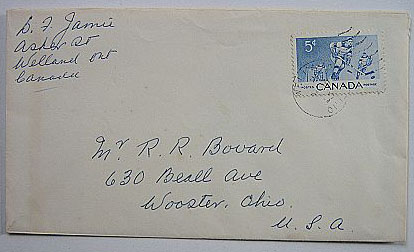 D. F. Jamie
Asher St
Welland Ont
Canada
5¢
POSTES CANADA POSTAGE
Mr R. R. Bovard
630 Beall Ave
Wooster, Ohio.
U. S. A.